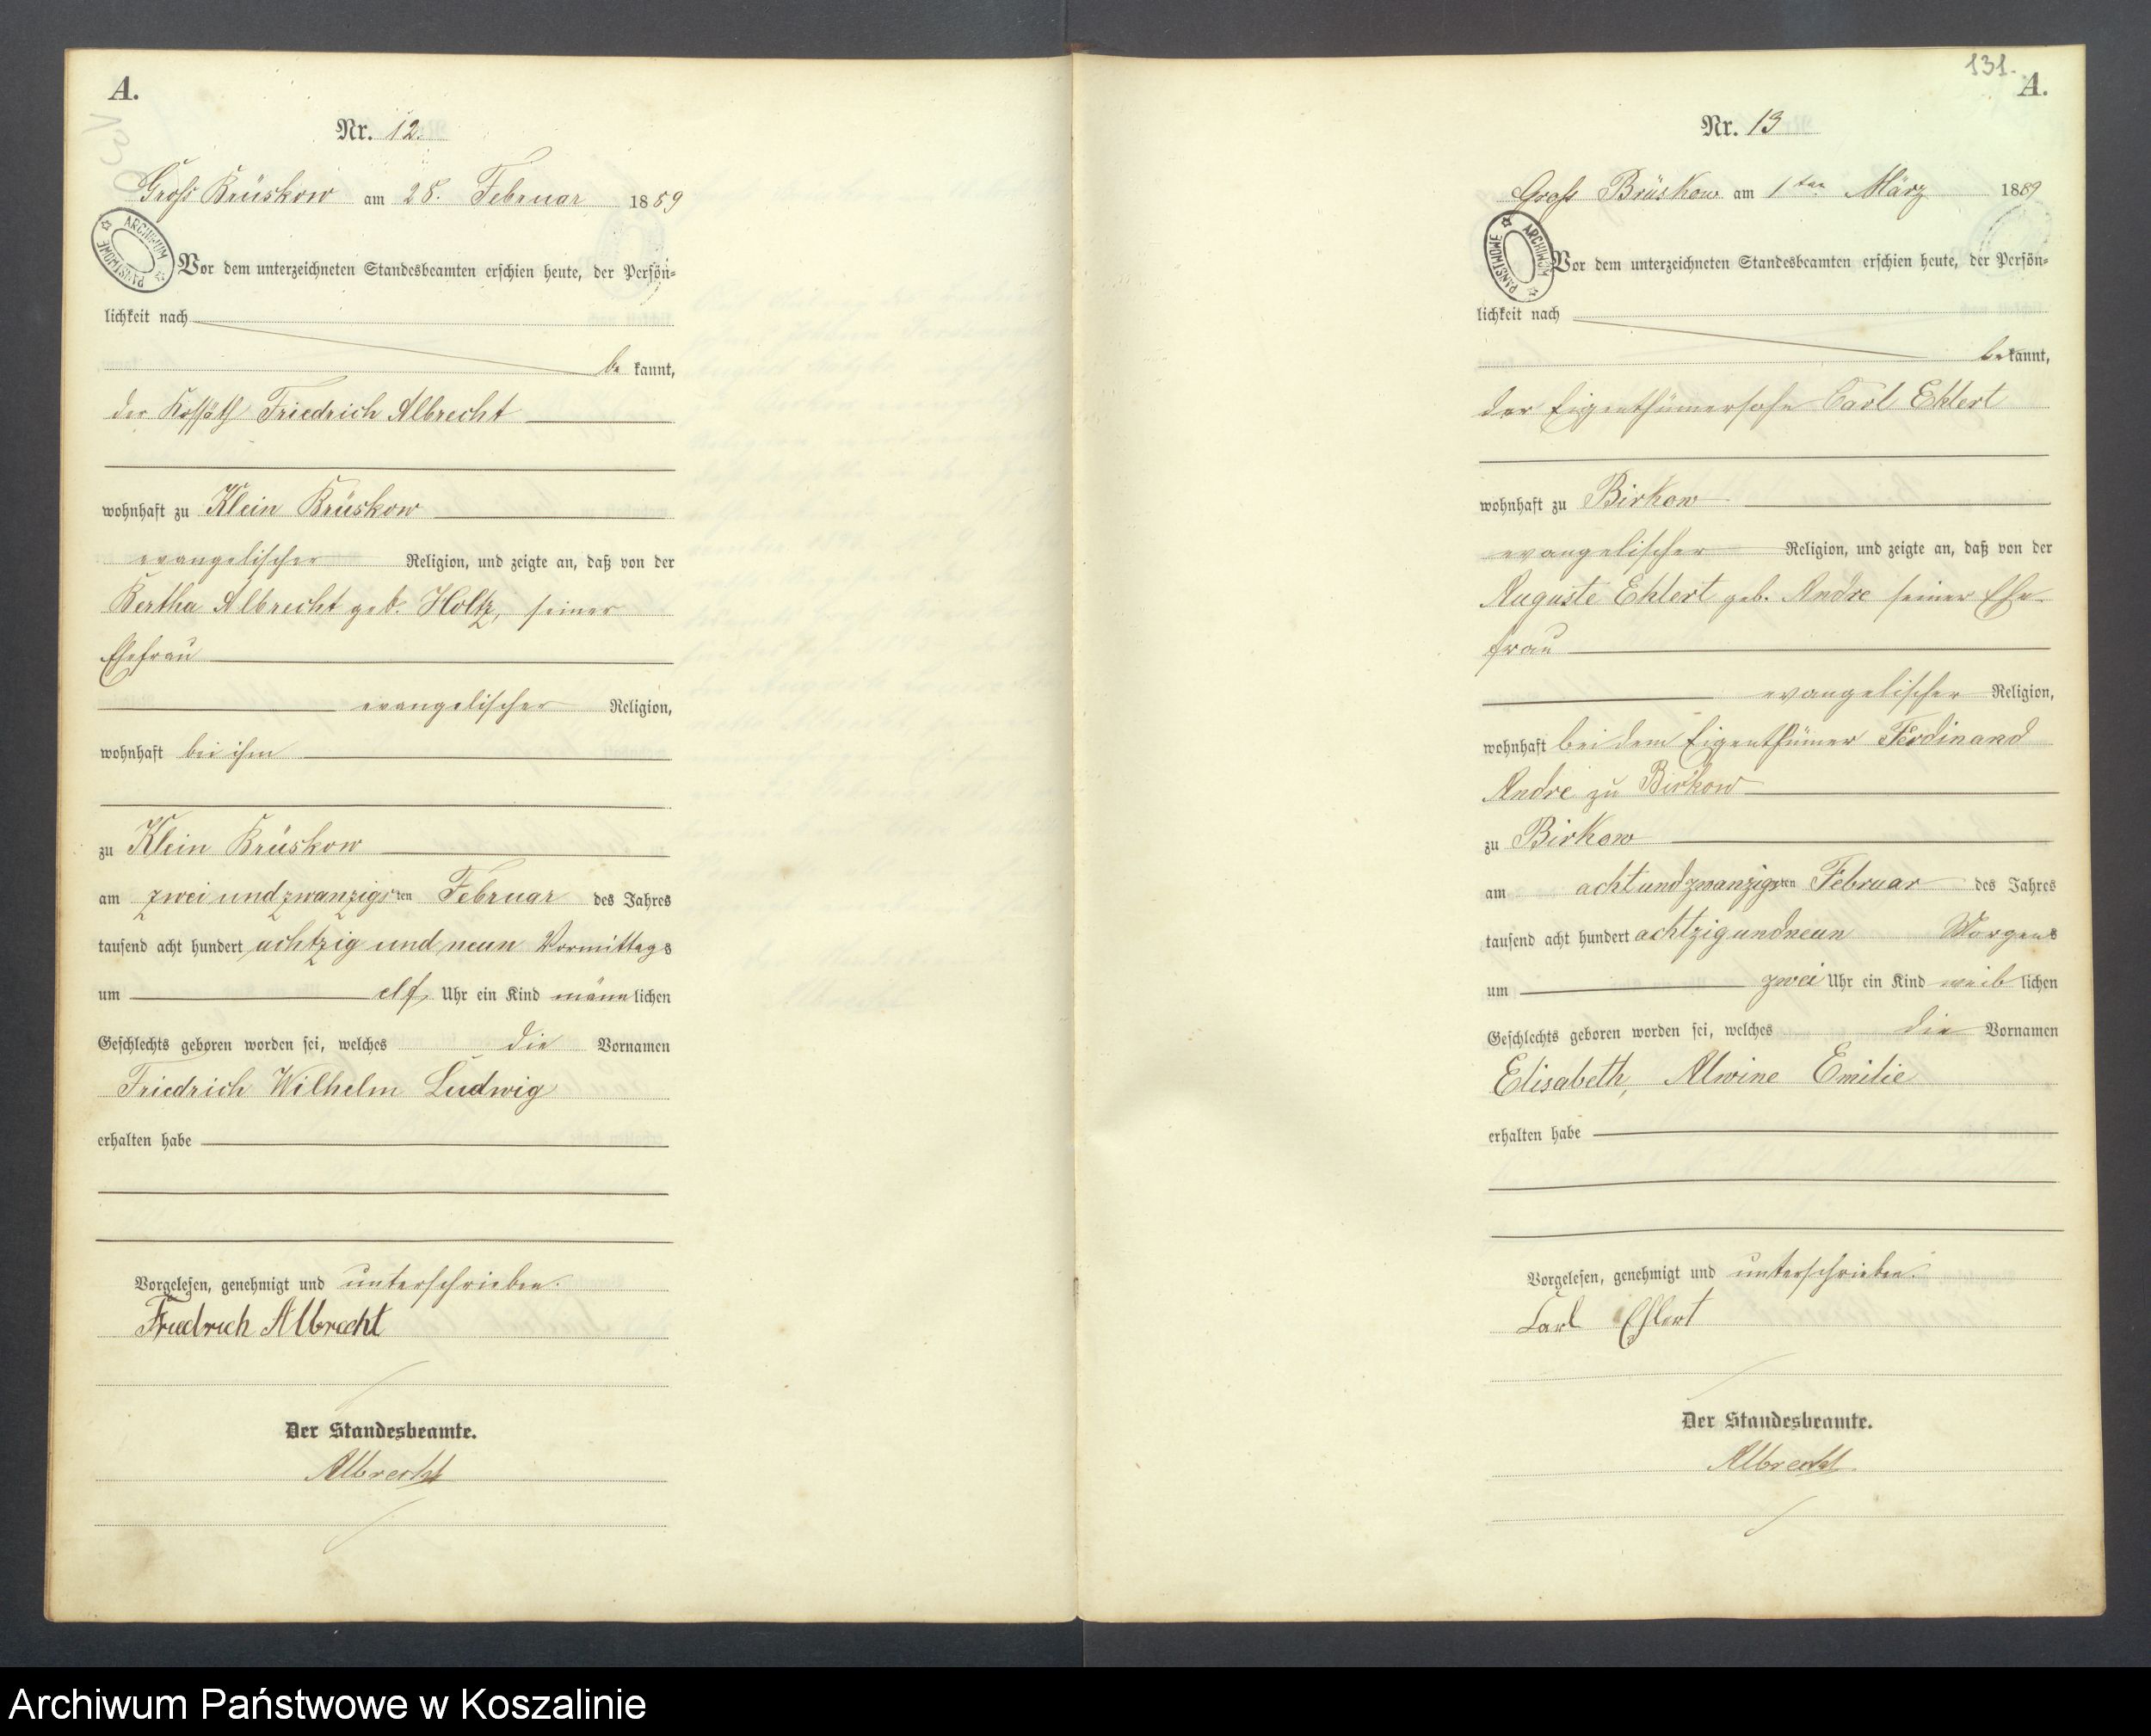 A.
Nr. 12.
Groß Brüskow am 28. Februar 1889
ARCHIWUM PAŃSTWOWE
Vor dem unterzeichneten Standesbeamten erschien heute, der Persön-
lichkeit nach
be kannt,
der Kossäth Friedrich Albrecht
wohnhaft zu Klein Brüskow
evangelischer Religion, und zeigte an, daß von der
Bertha Albrecht geb. Holtz, seiner
Ehefrau
evangelischer Religion,
wohnhaft bei ihm
zu Klein Brüskow
am zwei und zwanzigsten Februar des Jahres
tausend acht hundert achtzig und neun Vormittags
um elf Uhr ein Kind männlichen
Geschlechts geboren worden sei, welches die Vornamen
Friedrich Wilhelm Ludwig
erhalten habe
Vorgelesen, genehmigt und unterschrieben.
Friedrich Albrecht
Der Standesbeamte.
Albrecht
131.
A.
Nr. 13
Groß Brüskow am 1ten März 1889
ARCHIWUM PAŃSTWOWE
Vor dem unterzeichneten Standesbeamten erschien heute, der Persön-
lichkeit nach
bekannt,
der Eigenthümersohn Carl Ehlert
wohnhaft zu Birkow
evangelischer Religion, und zeigte an, daß von der
Auguste Ehlert geb. Andre seiner Ehe-
frau
evangelischer Religion,
wohnhaft bei dem Eigenthümer Ferdinand
Andre zu Birkow
zu Birkow
am achtundzwanzigsten Februar des Jahres
tausend acht hundert achtzigundneun Morgens
um zwei Uhr ein Kind weiblichen
Geschlechts geboren worden sei, welches die Vornamen
Elisabeth, Alwine Emilie
erhalten habe
Vorgelesen, genehmigt und unterschrieben.
Carl Ehlert
Der Standesbeamte.
Albrecht
Archiwum Państwowe w Koszalinie